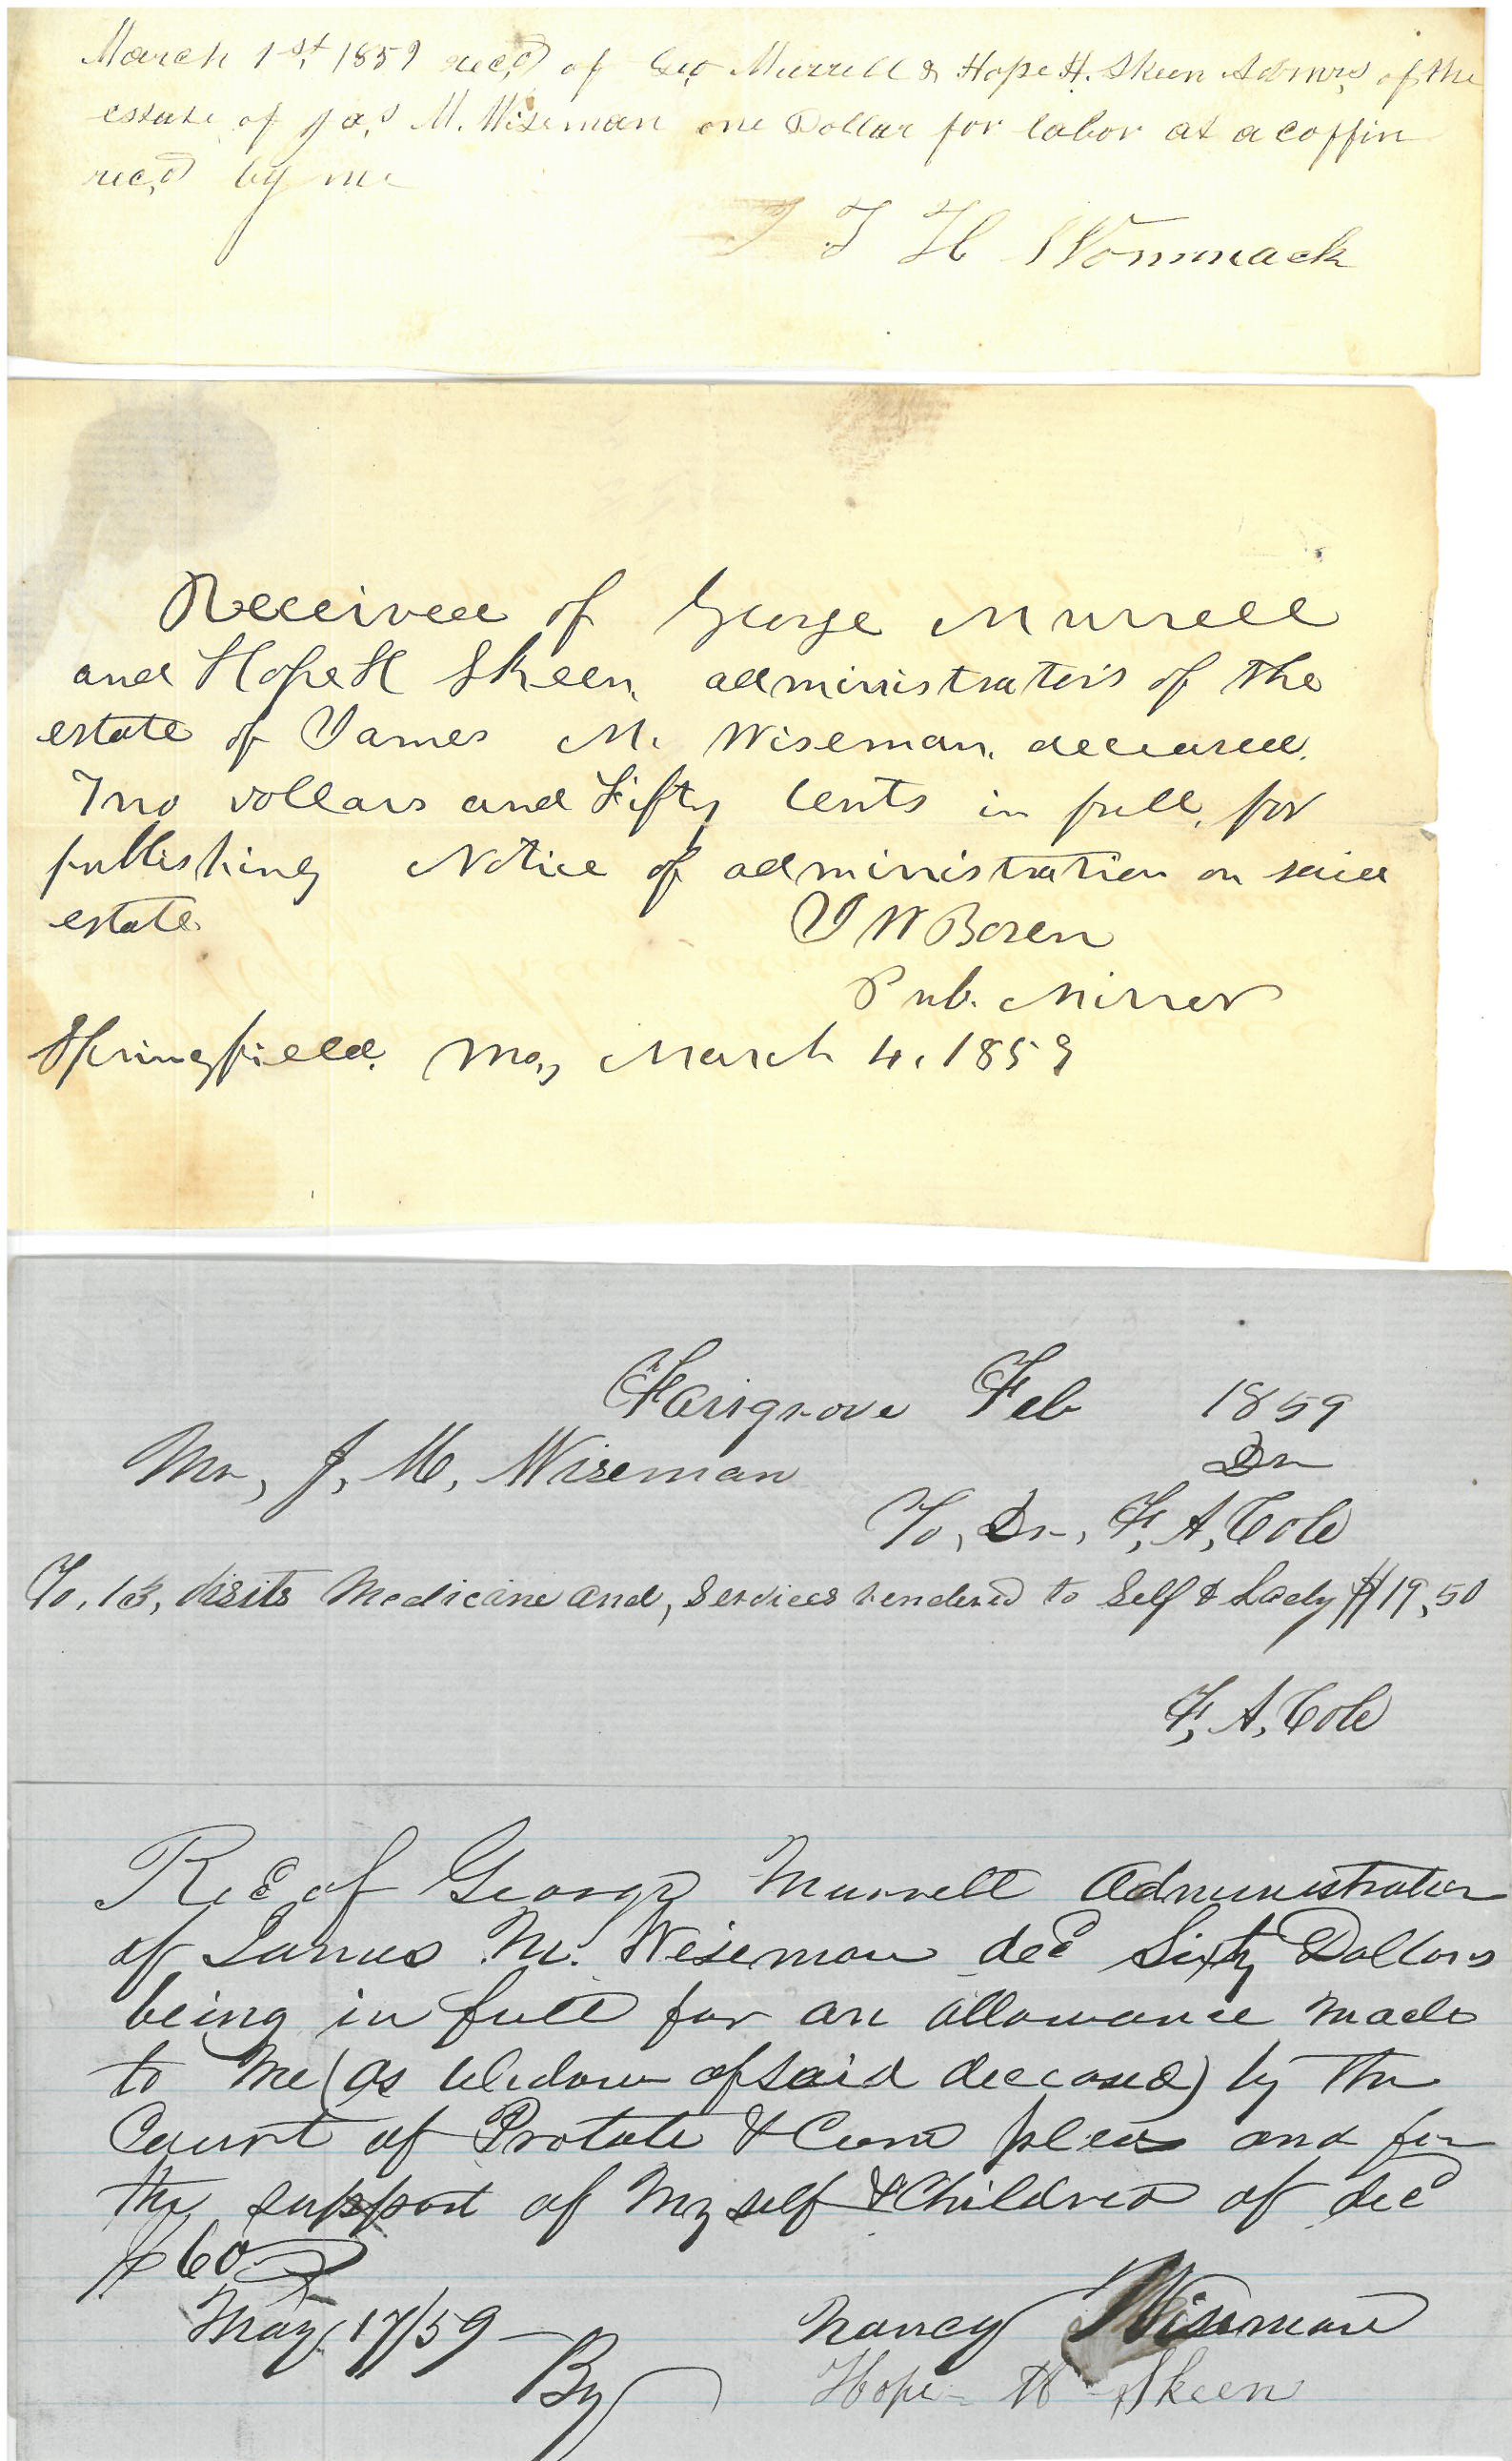 March 1st, 1859 rec,d of Geo Murrell & Hope H. Skeen Admrs, of the
estate of Jas, M. Wiseman one Dollar for labor at a coffin
rec,d by me
T H Wommack
Received of George Murrell
and Hope H Skeen, administrators of the
estate of James M. Wiseman, deceased,
Two dollars and Fifty Cents in full, for
publishing Notice of administration on said
estate.
J W Boren
Pub. Mirror
Springfield, Mo, March 4, 1859
Fairgrove Feb 1859
Mr, J, M, Wiseman Dr
To, Dr, F, A, Cole
To, 13, visits Medicine and, Services rendered to Self & Lady $19,50
F, A, Cole
Recd of George Murrell Administrator
of James M. Wiseman decd Sixty Dollars
being in full for an allowance made
to me (as Widow of said deceased) by the
Court of Probate & Com pleas and for
the support of my self & Children of decd
$60
May 17/59 – Nancy Wiseman
By Hope H Skeen